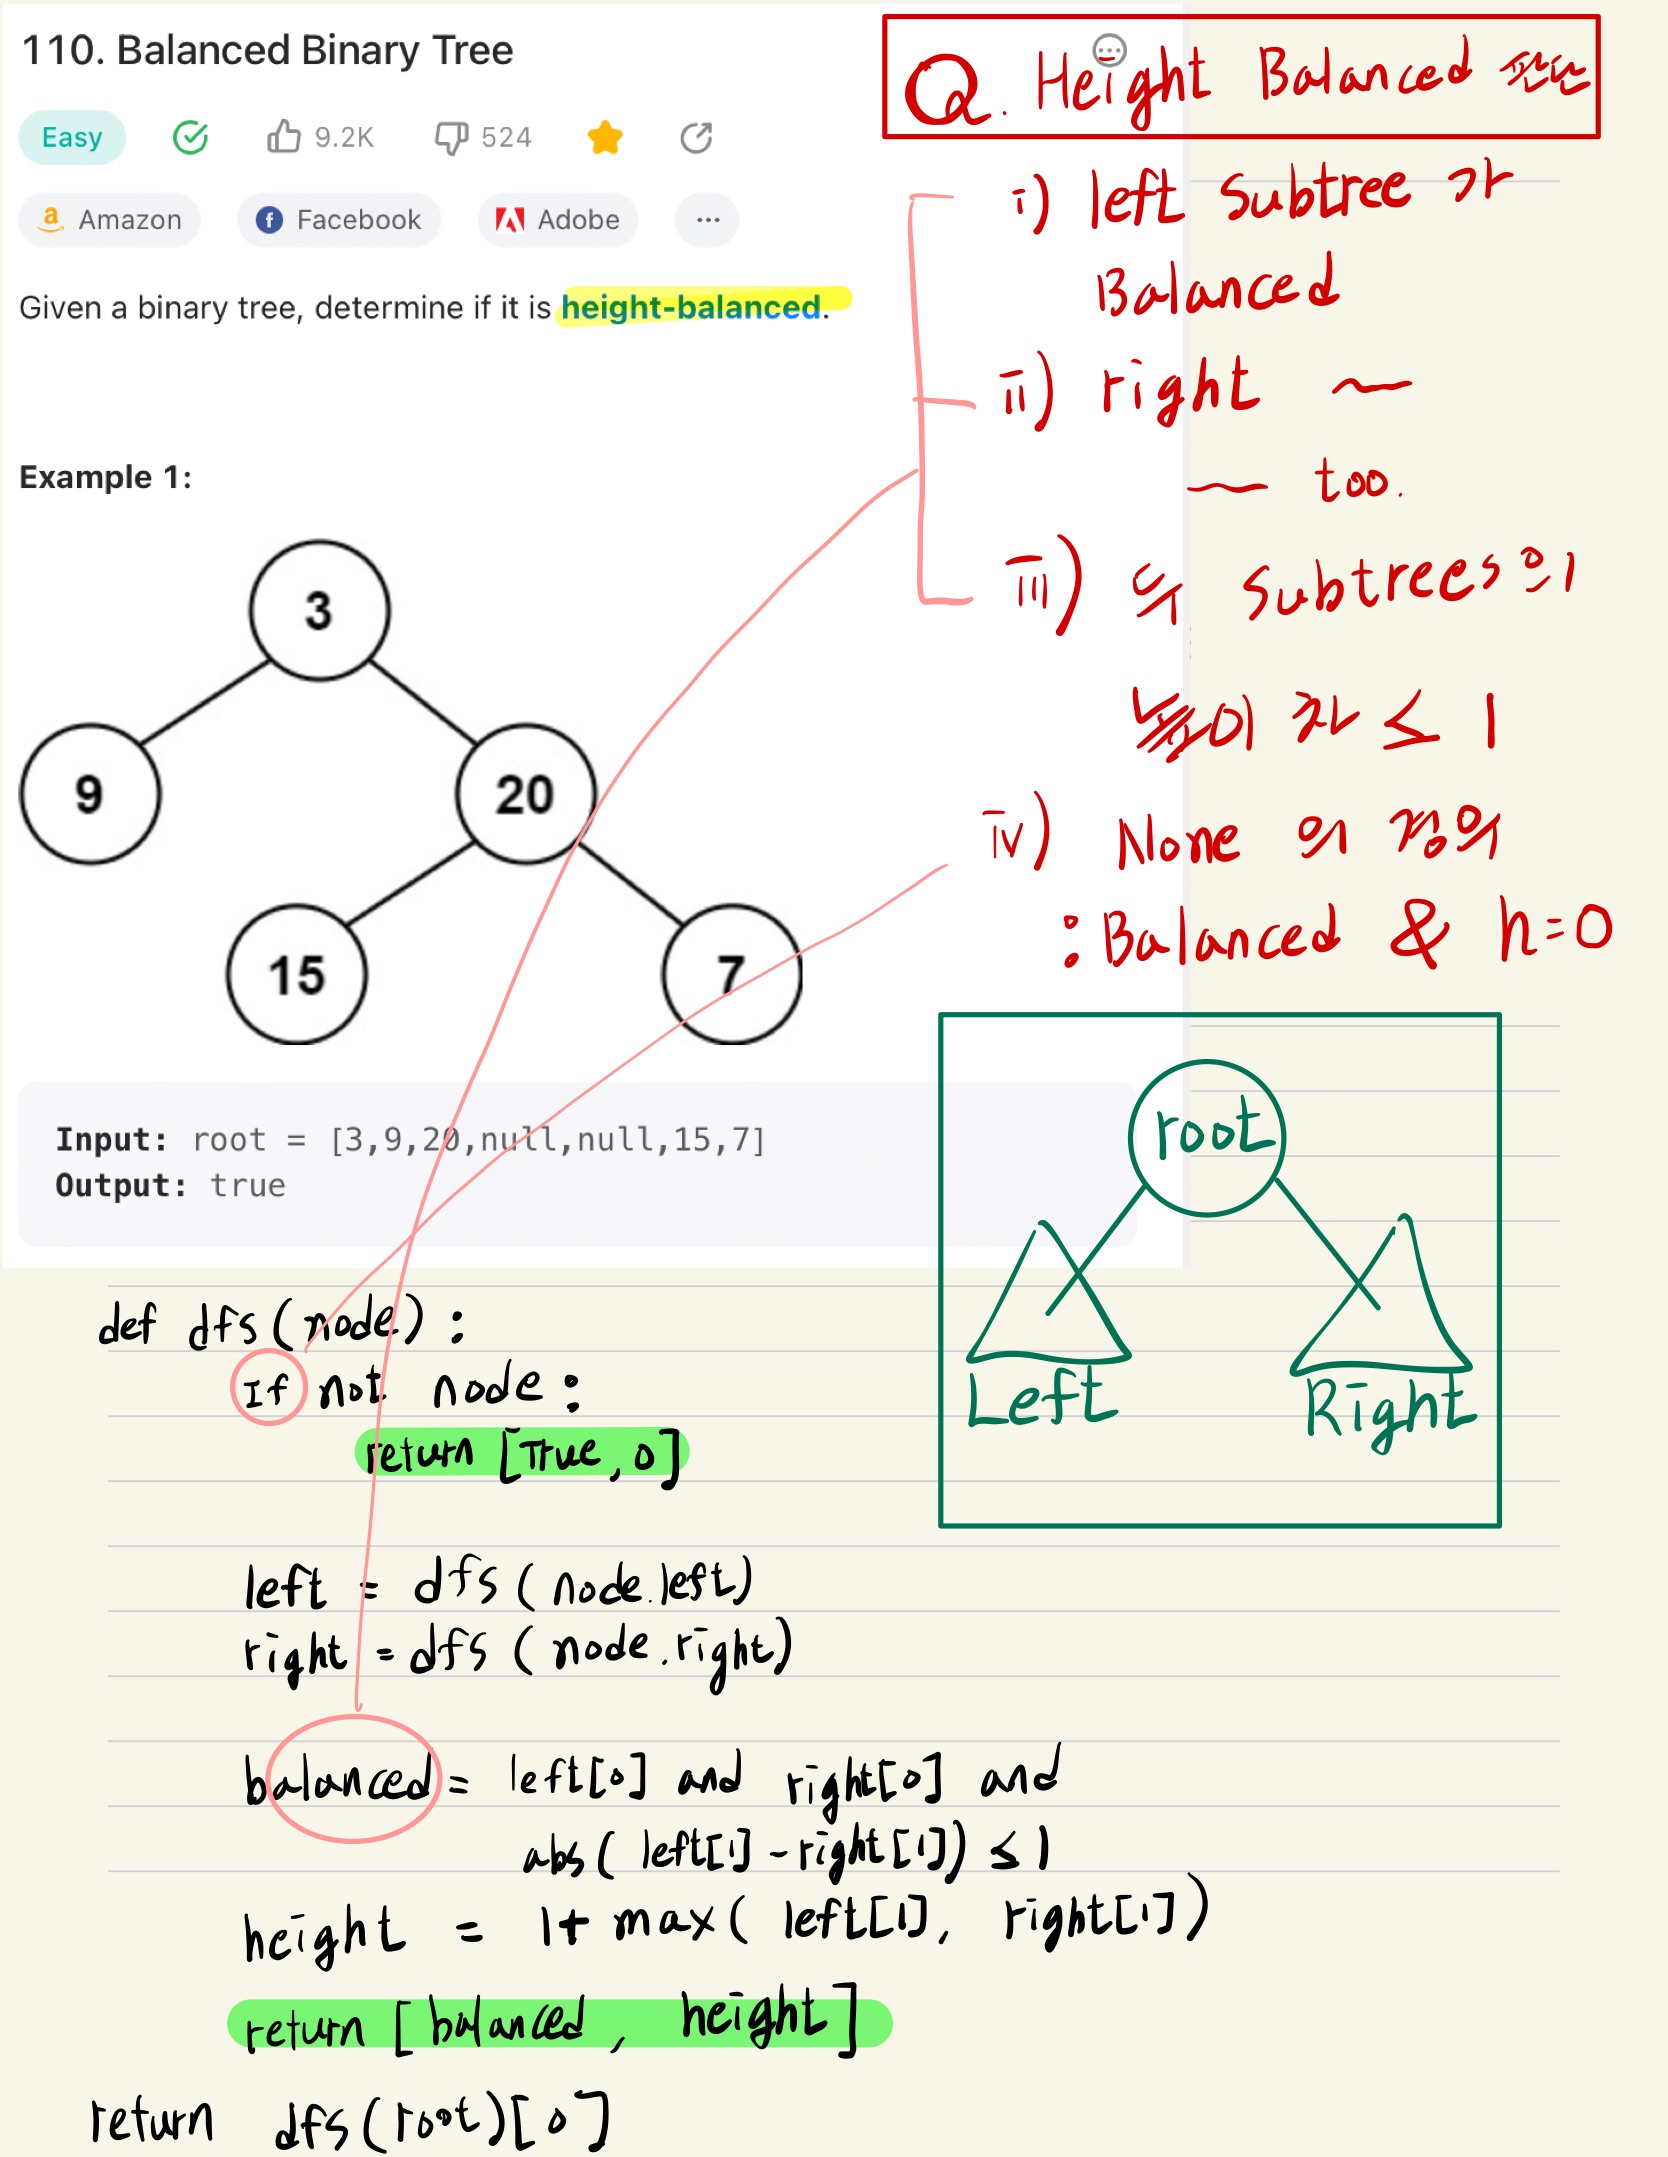 110. Balanced Binary Tree
Easy 9.2K 524
Amazon Facebook Adobe ...
Given a binary tree, determine if it is height-balanced.
Example 1:
3
9 20
15 7
Input: root = [3,9,20,null,null,15,7]
Output: true
Q. Height Balanced 판단
i) left Subtree 가
Balanced
ii) right ~
~ too.
iii) 두 Subtrees의
높이 차 ≤ 1
iv) None 의 정의
: Balanced & h=0
root
Left Right
def dfs(node):
If not node:
return [True, 0]
left = dfs(node.left)
right = dfs(node.right)
balanced = left[0] and right[0] and
abs(left[1] - right[1]) ≤ 1
height = 1+ max(left[1], right[1])
return [balanced, height]
return dfs(root)[0]